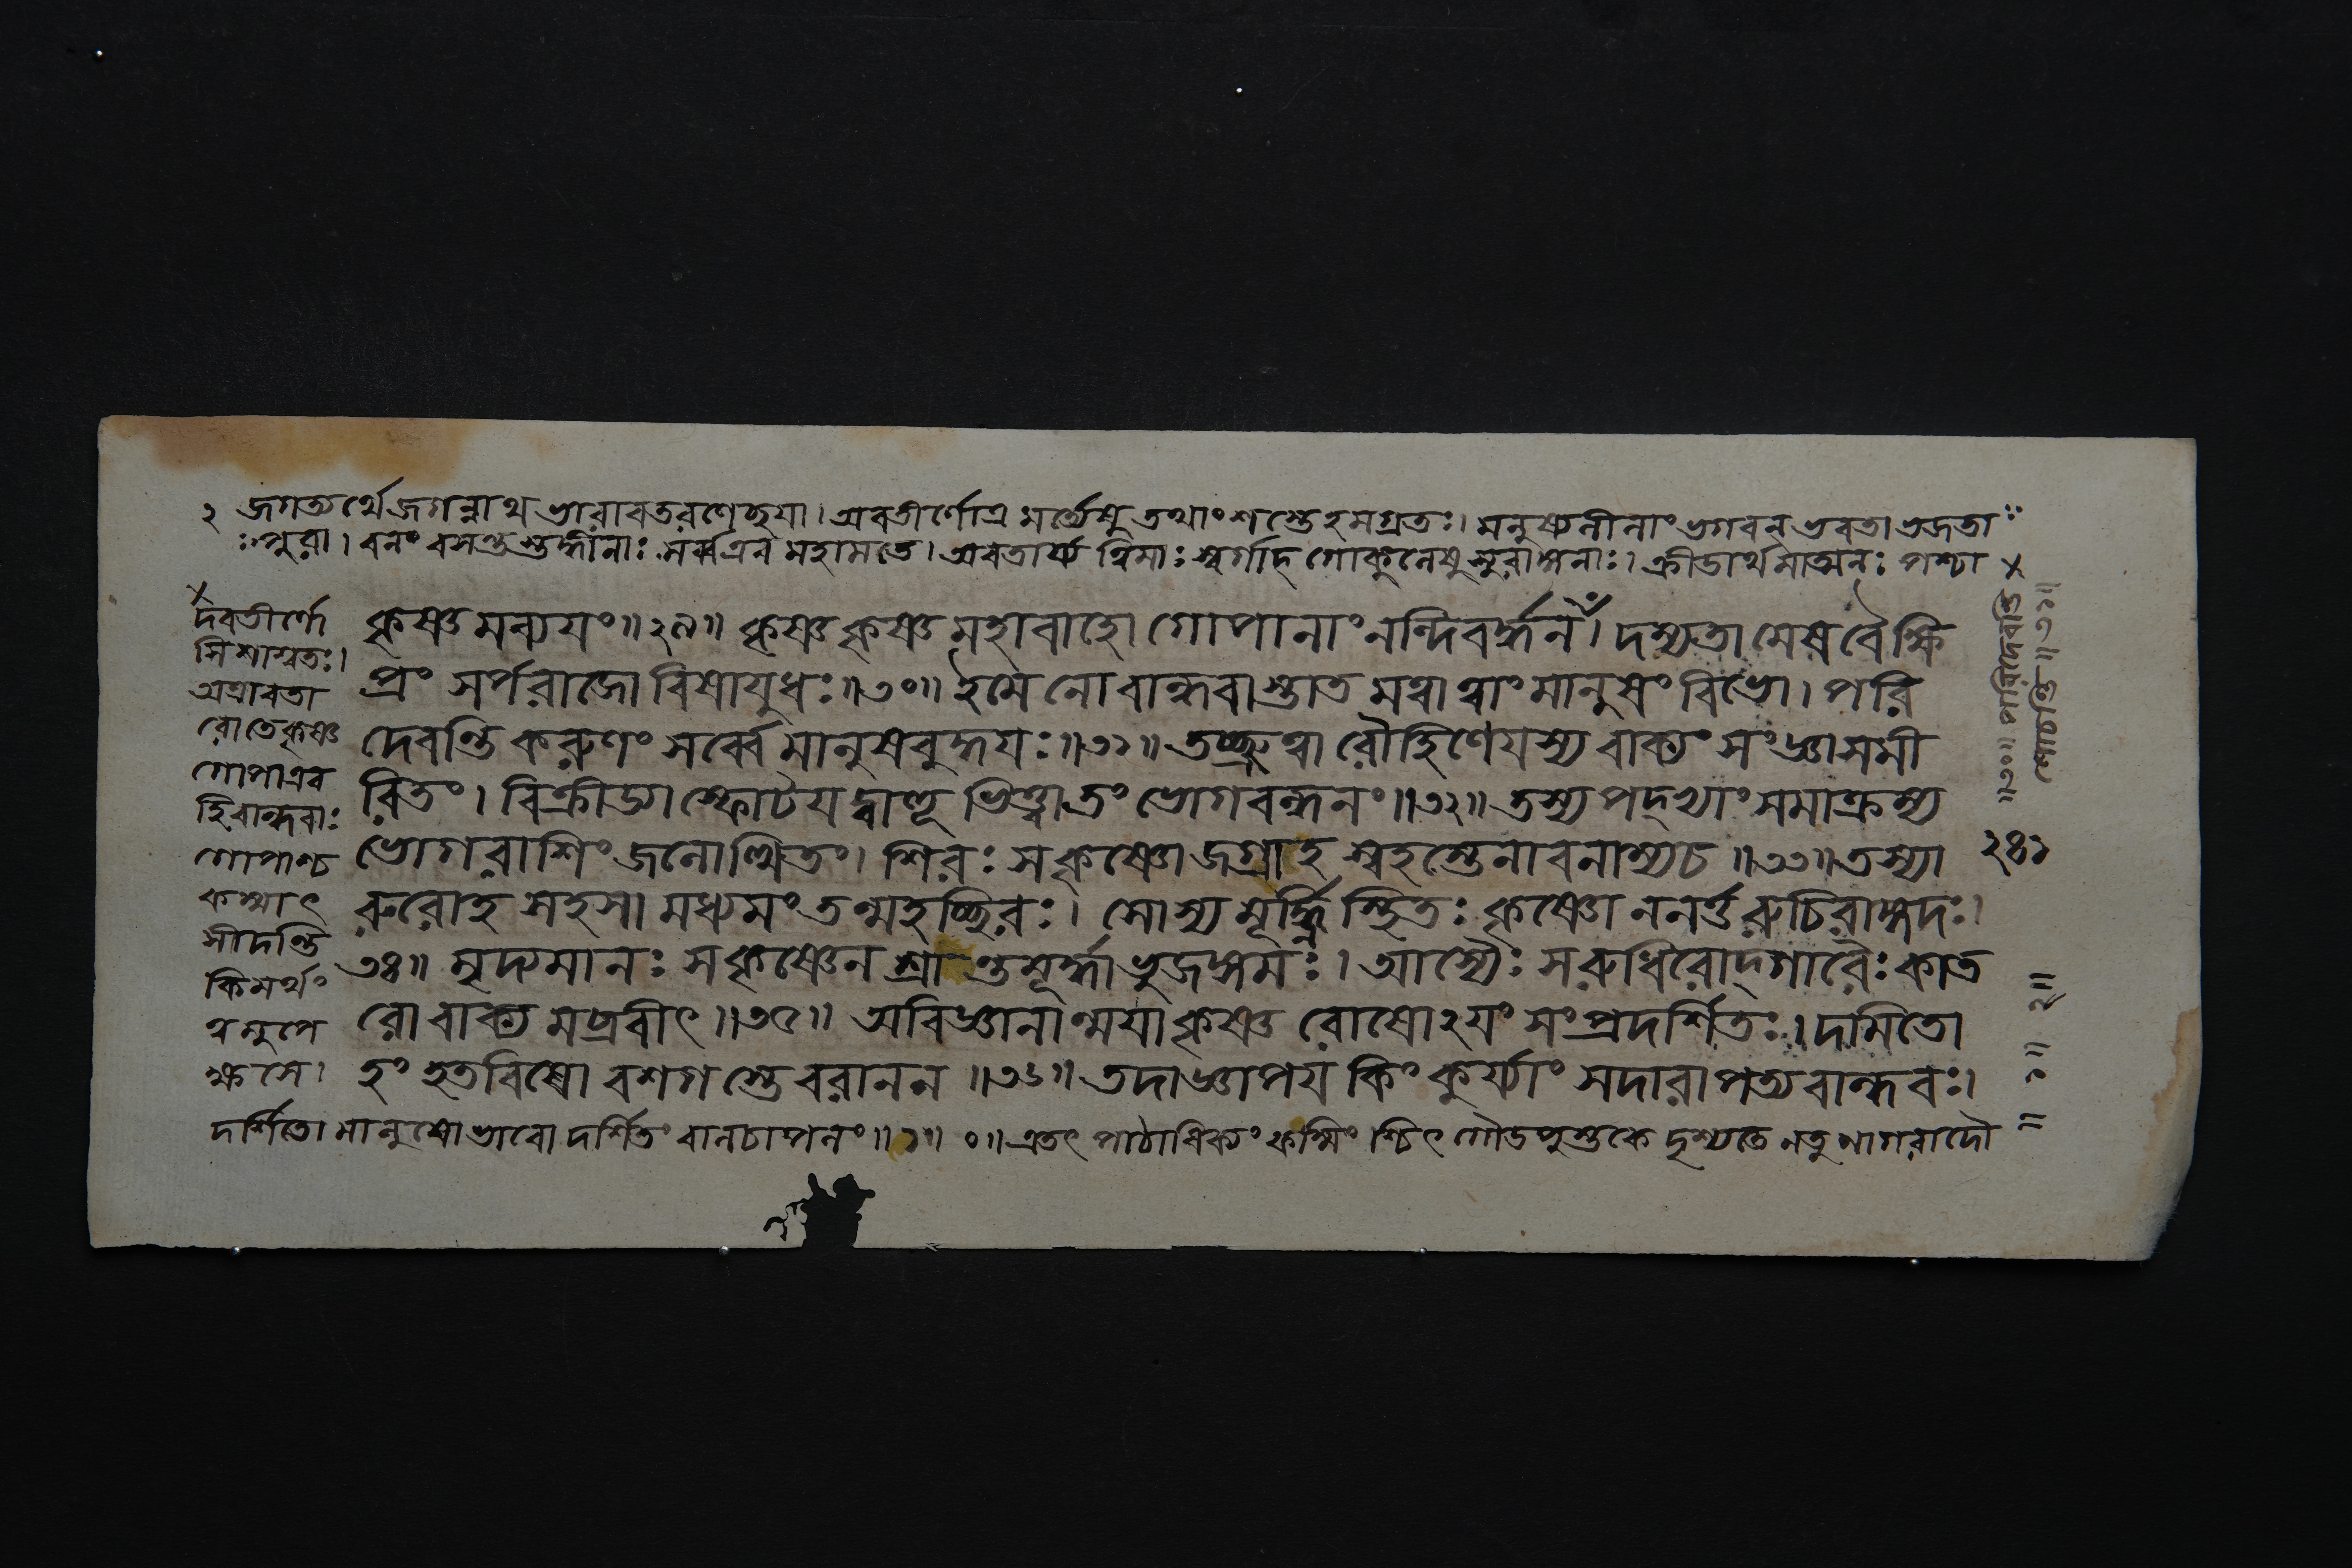 ২ জগত্যর্থে জগন্নাথ ভারাবতরণেচ্ছয়া। অবতীর্ণোঽত্র মর্ত্যেষু তত্থাংশস্তেঽহমগ্রজঃ। মনুষ্যলীলাং ভগবন্ ভবতা ভজতা
ঃসুরা। বলং বসন্তস্তল্লীলাঃ সর্ব্বএব মহামতে। অবতার্য্য ত্বিমাঃ স্বর্গাদ্ গোকুলেষু সুরাঙ্গনাঃ। ক্রীডার্থমাত্মনঃ পশ্চা
দবতীর্ণো
সি শাশ্বতঃ।
অত্রাবতী
র্ণোতে কৃষ্ণ
গোপাএব
হি বান্ধবাঃ
গোপ্যশ্চ
কস্মাৎ
সীদন্তি
কিমর্থং
ত্বমুপে
ক্ষসে।
কৃষ্ণমব্যয়ং॥২৯॥ কৃষ্ণ কৃষ্ণ মহাবাহো গোপানাং নন্দিবর্দ্ধন। দম্যতামেষ বৈ ক্ষি
প্রং সর্পরাজো বিষায়ুধঃ॥৩০॥ ইমে নো বান্ধবাস্তাত মত্বা ত্বাং মানুষং বিভো। পরি
দেবন্তি করুণং সর্ব্বে মানুষবুদ্ধয়ঃ॥৩১॥ তচ্ছ্রুত্বা রৌহিণেয়স্য বাক্যং সংজ্ঞাসমী
রিতং। বিক্রীড্যাস্ফোটয়দ্বাহূ ভিত্ত্বা তং ভোগবন্ধনং॥৩২॥ তস্য পদ্ভ্যাং সমাক্রম্য
ভোগরাশিং জলোত্থিতং। শিরঃ সকৃষ্ণো জগ্রাহ স্বহস্তেনাবনাম্য চ॥৩৩॥ তস্যা
রুরোহ সহসা মধ্যমং তন্মহচ্ছিরঃ। সোস্য মূর্দ্ধ্নি স্থিতঃ কৃষ্ণো ননর্ত্ত রুচিরাঙ্গদঃ।
৩৪॥ মৃদ্যমানঃ সকৃষ্ণেন শ্রান্তমূর্দ্ধা ভুজঙ্গমঃ। আস্যৈঃ সরুধিরোদ্গারৈঃ কাত
রো বাক্যমব্রবীৎ॥৩৫॥ অবিজ্ঞানান্ময়া কৃষ্ণ রোষোঽয়ং সংপ্রদর্শিতঃ। দমিতো
হং হতবিষো বশগস্তে বরানন॥৩৬॥ তদাজ্ঞাপয় কিং কুর্য্যাং সদারাপত্যবান্ধবঃ।
দর্শিতো মানুষোভাবো দর্শিতং বালচাপলং॥১॥ ০॥ এতৎ পাঠাধিক্যং কস্মিংশ্চিৎ গৌডপুস্তকে দৃশ্যতে নতু নাগরাদৌ
॥৩০॥ পরিদেবন্তি
শোচন্তি॥৩১॥
২৪১
॥১॥ ২॥